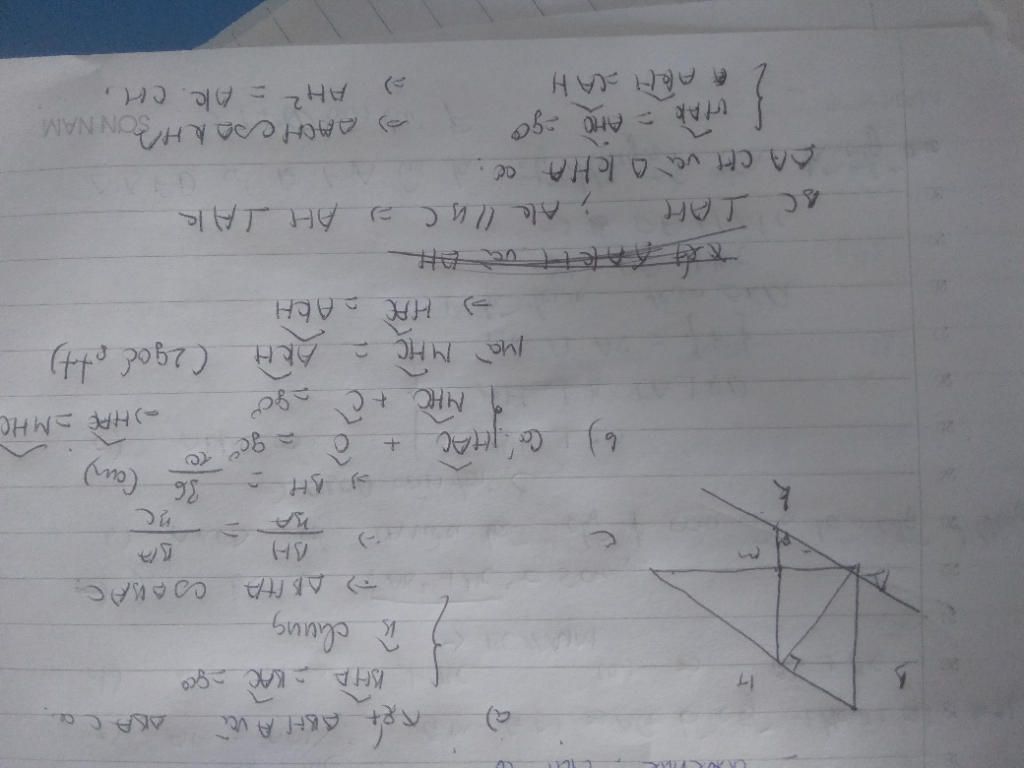 a) Xét ΔBHA và ΔBAC có
BHA = BAC = 90°
B chung
⇒ ΔBHA ∽ ΔBAC
⇒ BH/BA = BA/BC
⇒ BH = 36/10 (cm)
b) Có: HAC + C = 90°
MHC + C = 90° ⇒ HAC = MHC
Mà MHC = AKH (2 góc slt)
⇒ HAC = AKH
BC ⊥ AH ; AK // BC ⇒ AH ⊥ AK
ΔACH và ΔKHA có:
HAK = AHC = 90°
AKH = CAH
⇒ ΔACH ∽ ΔKHA
⇒ AH² = AK . CH.
SON NAM
B
H
A
M
C
K